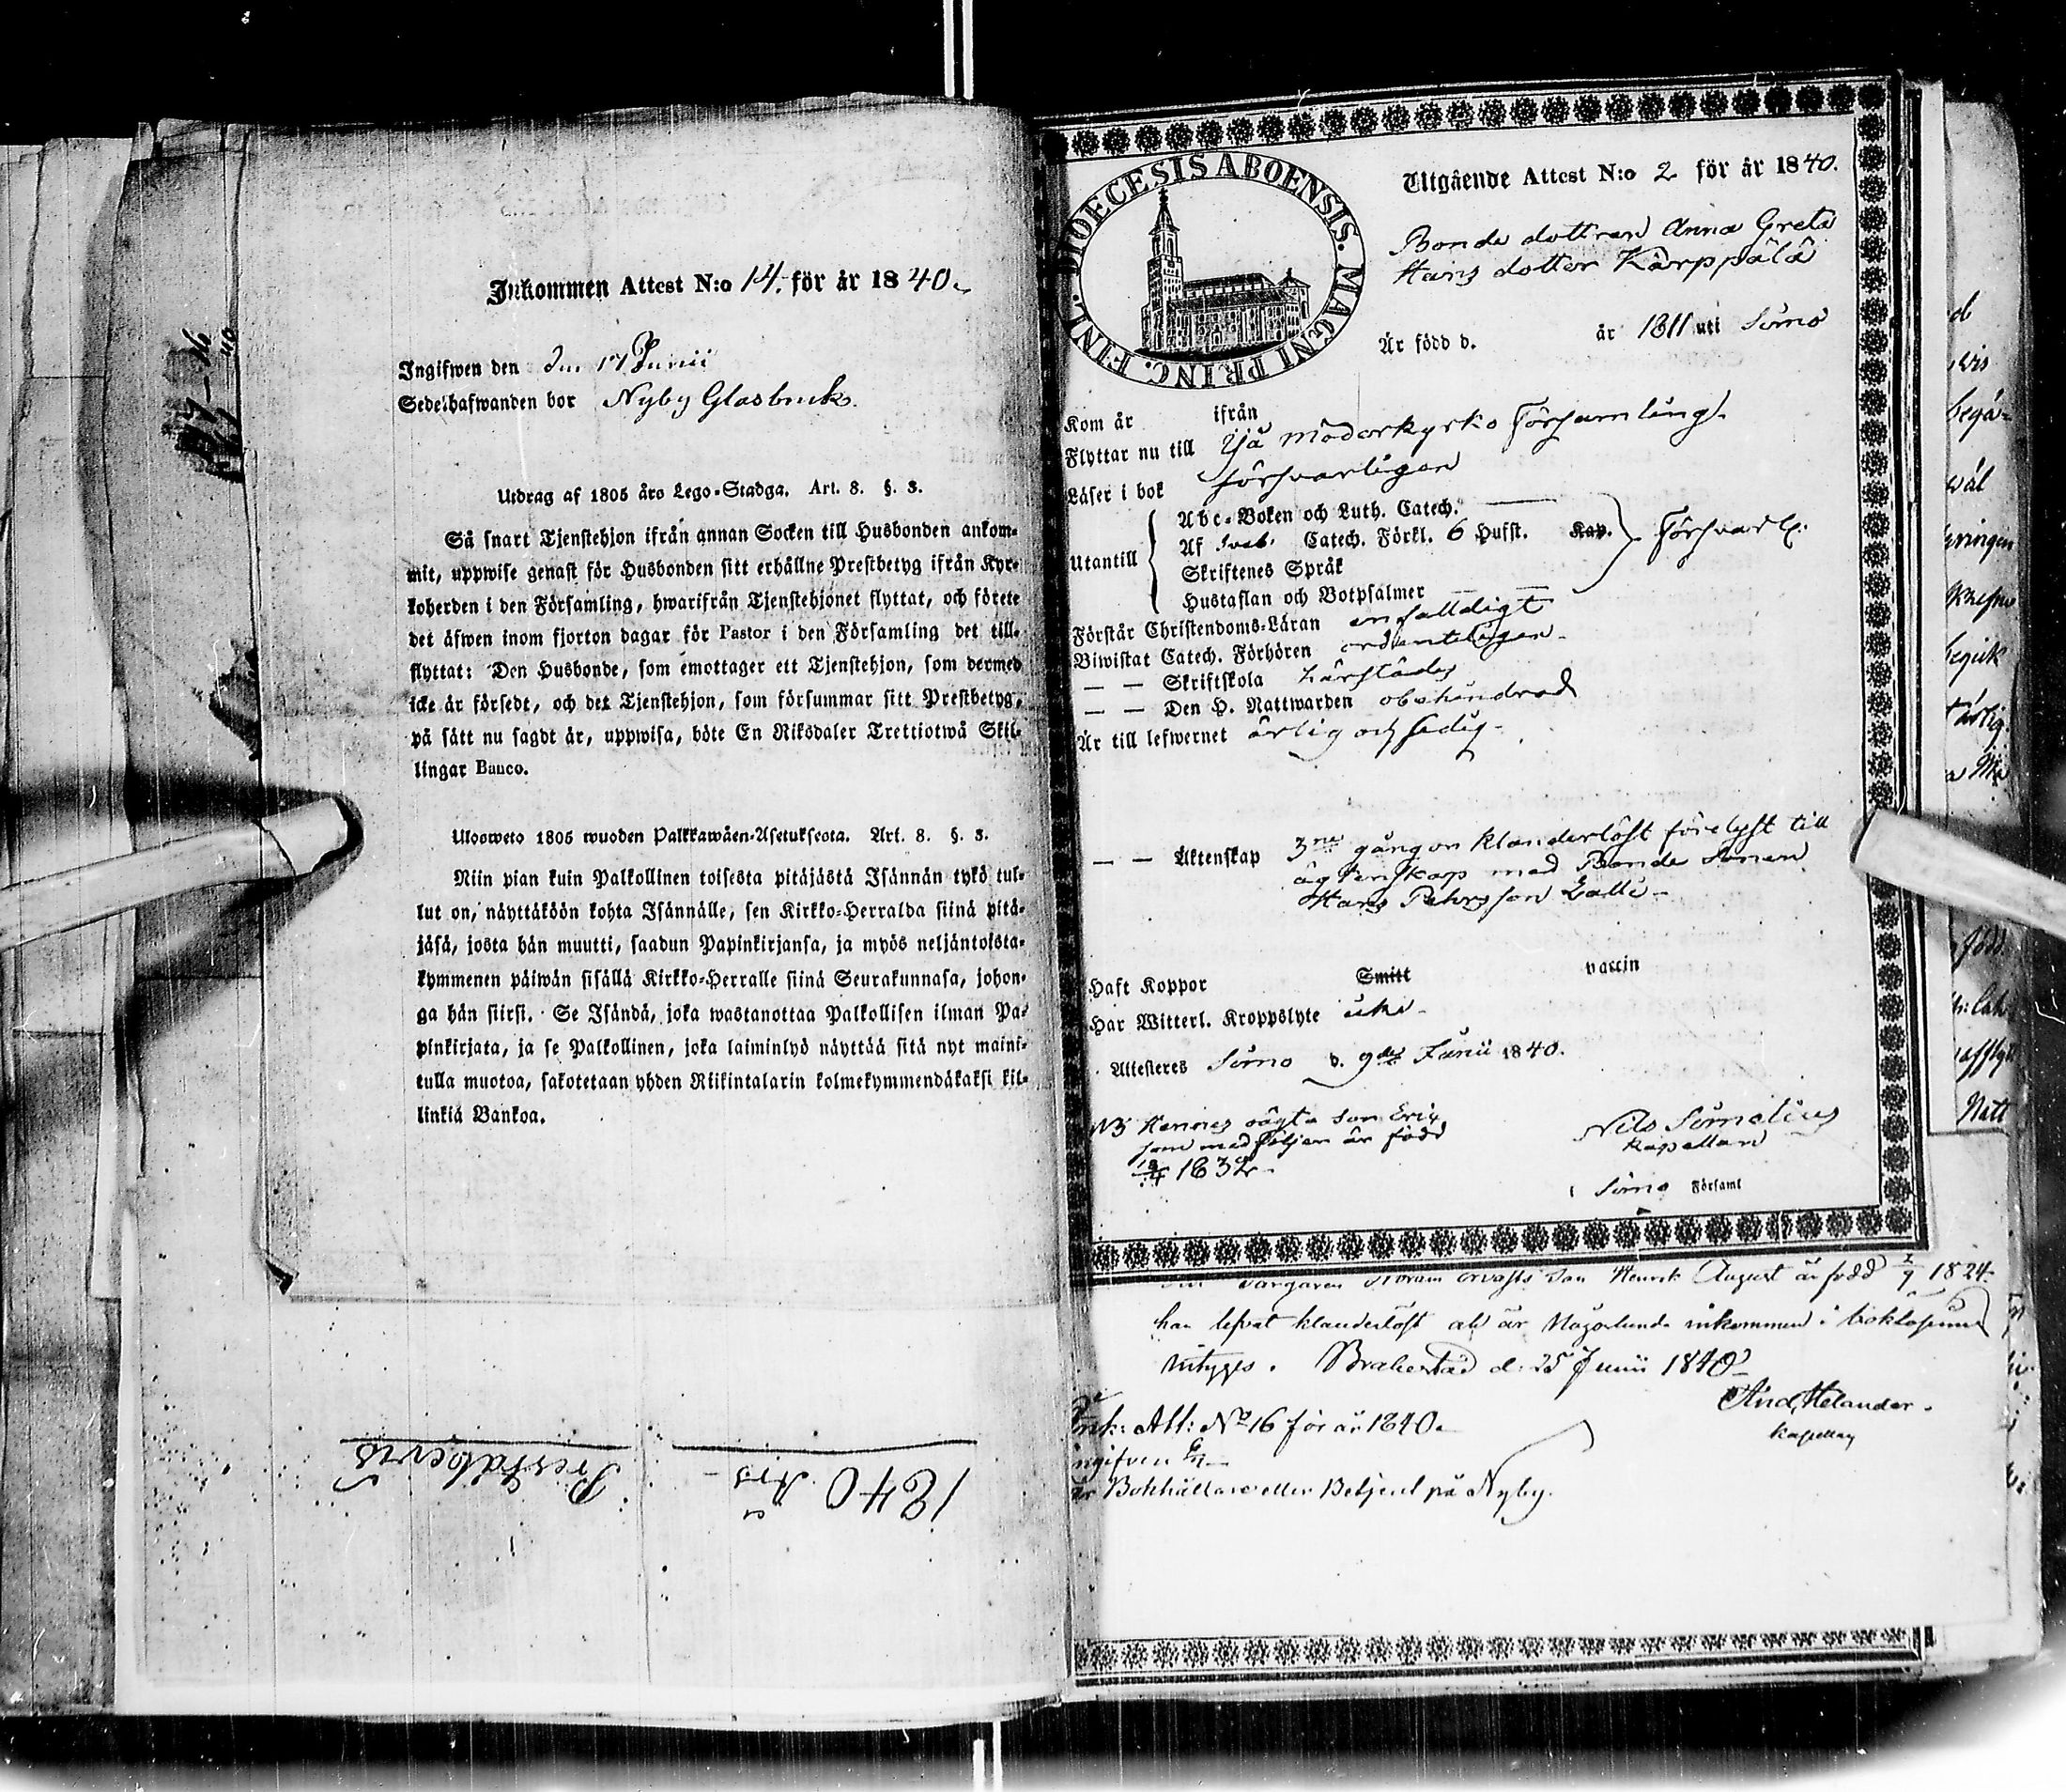 Inkommen Attest N:o 14. för år 1840.
Ingifwen den 17 Junii
Sedelhafwanden bor Nyby Glasbruk.
Utdrag af 1805 åro Lego-Stadga. Art. 8. §. 3.
Så snart Tjenstehjon ifrån annan Socken till Husbonden ankom-
mit, uppwise genast för Husbonden sitt erhållne Prestbetyg ifrån Kyr-
koherden i den Församling, hwarifrån Tjenstehjonet flyttat, och förete
det äfwen inom fjorton dagar för Pastor i den Församling det till-
flyttat: Den Husbonde, som emottager ett Tjenstehjon, som dermed
icke är försedt, och det Tjenstehjon, som försummar sitt Prestbetyg,
på sätt nu sagdt är, uppwisa, böte En Riksdaler Trettiotwå Skil-
lingar Banco.
Ulosweto 1805 wuoden Palkkawäen-Asetuksesta. Art. 8. §. 3.
Niin pian kuin Palkollinen toisesta pitäjästä Isännän tykö tul-
lut on, näyttäköön kohta Isännälle, sen Kirkko-Herralda siinä pitä-
jäsä, josta hän muutti, saadun Papinkirjansa, ja myös neljäntoista-
kymmenen päiwän sisällä Kirkko-Herralle siinä Seurakunnasa, johon-
ga hän siirsi. Se Isändä, joka wastanottaa Palkollisen ilman Pa-
pinkirjata, ja se Palkollinen, joka laiminlyö näyttää sitä nyt maini-
tulla muotoa, sakotetaan yhden Riikintalarin kolmekymmendäkaksi kil-
linkiä Bankoa.
1840 Års
Prestabevis
DIOECESIS ABOENSIS. MAGNI PRINC. FINL.
Utgående Attest N:o 2 för år 1840.
Bonde dottren Anna Greta
Hans dotter Kärppälä
Är född d. år 1811 uti Simo
Kom år ifrån
Flyttar nu till Ijå moderkyrko Församling.
Läser i bok försvarligen
Utantill
Abc-Boken och Luth. Catech.
Af Sveb. Catech. Förkl. 6 Hufst. Kap. Försvarl.
Skriftenes Språk
Hustaflan och Botpsalmer
Förstår Christendoms-Läran enfalldigt
Biwistat Catech. Förhören ordenteligen
— — Skriftskola härstädes
— — Den H. Nattwarden obehindrad
Är till lefwernet ärlig och sedig.
— — Äktenskap 3ne gångor klanderlöst förelyst till
ägtenskap med Bonde Sonen
Hans Pehrsson Galli
Haft Koppor Smitt vaccin
Har Witterl. Kroppslyte icke
Attesteres Simo d. 9de Junii 1840.
NB Hennes oägta son Eric
som medföljer är född
1832
Nils Simelius
Kapellan
i Simo Församl
son Henrik August är född 1824
har lefvat klanderlöst och är någorlunda inkommen i bokläsning
intygas. Brahestad d. 25 Junii 1840
And. Helander.
Kapellan
Ink: Att: No 16 för år 1840.
ingifven
är Bokhållare eller Betjent på Nyby.